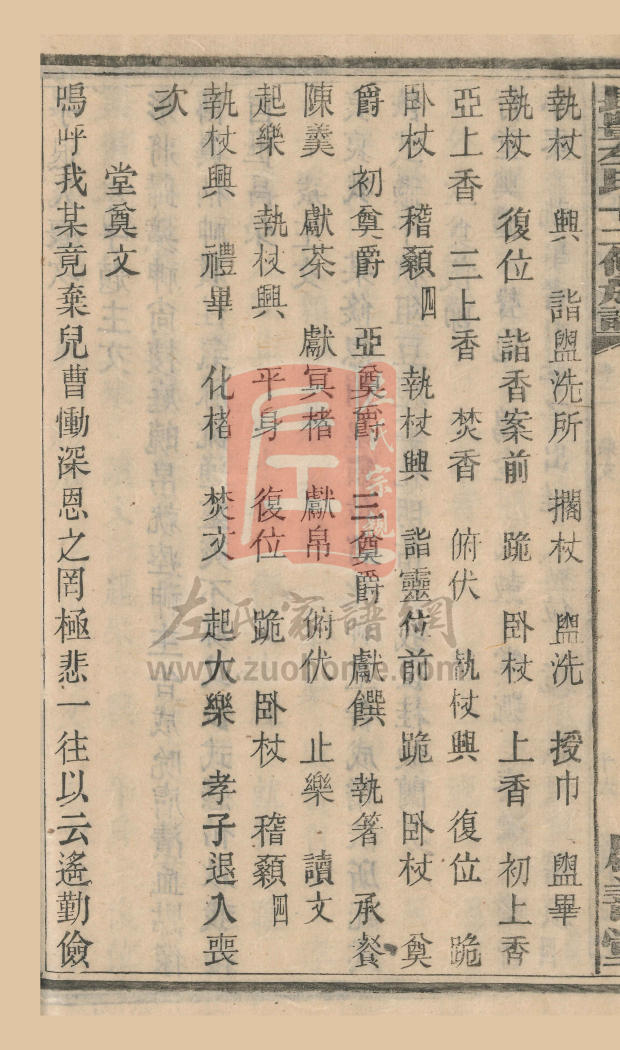 執杖 興 詣盥洗所 擱杖 盥洗 授巾 盥畢
執杖 復位 詣香案前 跪 卧杖 上香 初上香
亞上香 三上香 焚香 俯伏 執杖興 復位 跪
卧杖 稽顙四 執杖興 詣靈位前 跪 卧杖 奠
爵 初奠爵 亞奠爵 三奠爵 獻饌 執箸 承餐
陳羹 獻茶 獻冥楮 獻帛 俯伏 止樂 讀文
起樂 執杖興 平身 復位 跪 卧杖 稽顙四
執杖興 禮畢 化楮 焚文 起大樂 孝子退入喪
次
堂奠文
嗚呼我某竟棄兒曹慟深恩之罔極悲一往以云遙勤儉
左氏宗親
左氏家譜網
www.zuohome.com